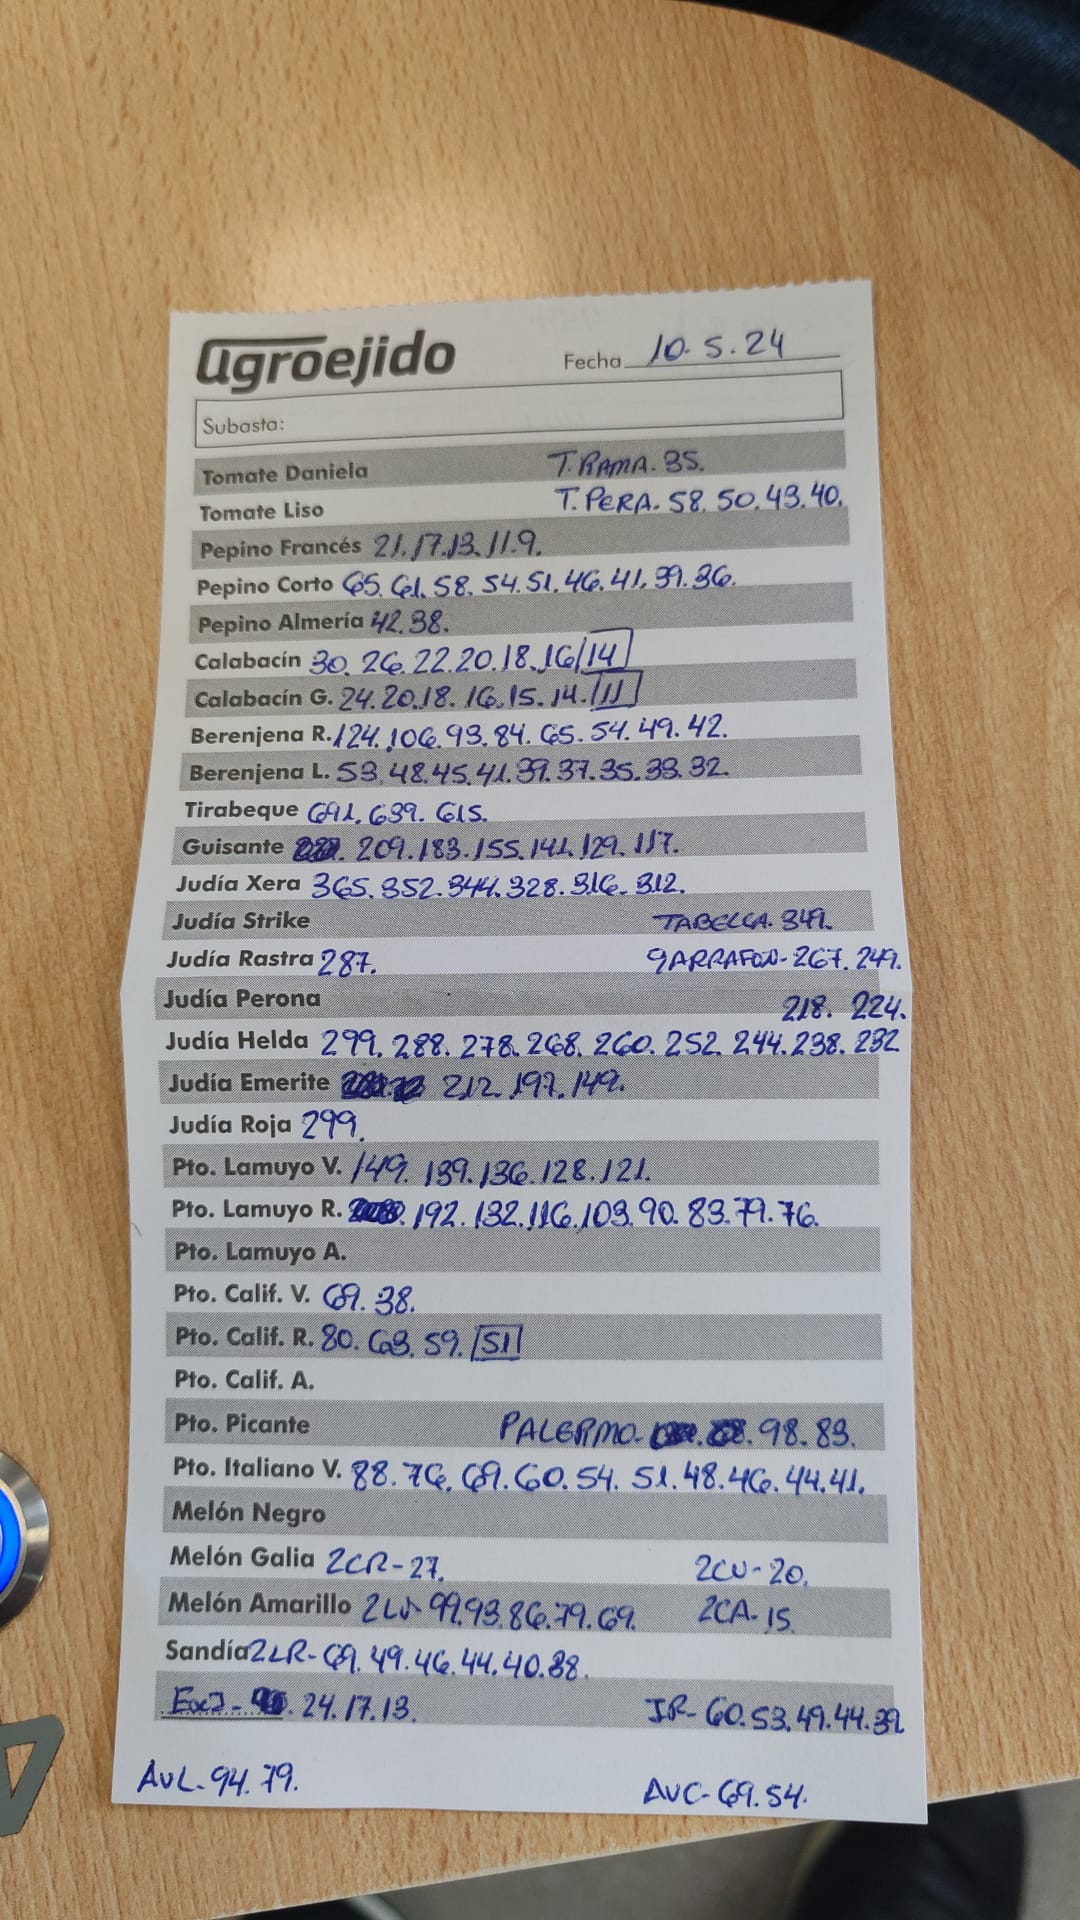 agroejido Fecha 10.5.24
Subasta:
Tomate Daniela T.RAMA.35.
Tomate Liso T.PERA.58.50.43.40.
Pepino Francés 21.17.13.11.9.
Pepino Corto 65.61.58.54.51.46.41.39.36.
Pepino Almería 42.38.
Calabacín 30.26.22.20.18.16/14
Calabacín G. 24.20.18.16.15.14./11
Berenjena R. 124.106.93.84.65.54.49.42.
Berenjena L. 53.48.45.41.39.37.35.33.32.
Tirabeque 691.639.615.
Guisante 209.183.155.141.129.117.
Judía Xera 365.352.344.328.316.312.
Judía Strike TABELLA.349.
Judía Rastra 287. GARRAFON-267.249.
Judía Perona 218. 224.
Judía Helda 299.288.278.268.260.252.244.238.232
Judía Emerite 212.197.149.
Judía Roja 299.
Pto. Lamuyo V. 149.139.136.128.121.
Pto. Lamuyo R. 192.132.116.103.90.83.79.76.
Pto. Lamuyo A.
Pto. Calif. V. 69.38.
Pto. Calif. R. 80.63.59./51
Pto. Calif. A.
Pto. Picante PALERMO.98.83.
Pto. Italiano V. 88.76.69.60.54.51.48.46.44.41.
Melón Negro
Melón Galia 2CR-27. 2CU-20.
Melón Amarillo 99.93.86.79.69. 2CA-15.
Sandía 2LR-69.49.46.44.40.38.
24.17.13. JR-60.53.49.44.39
AVL.94.79. AVC-69.54.